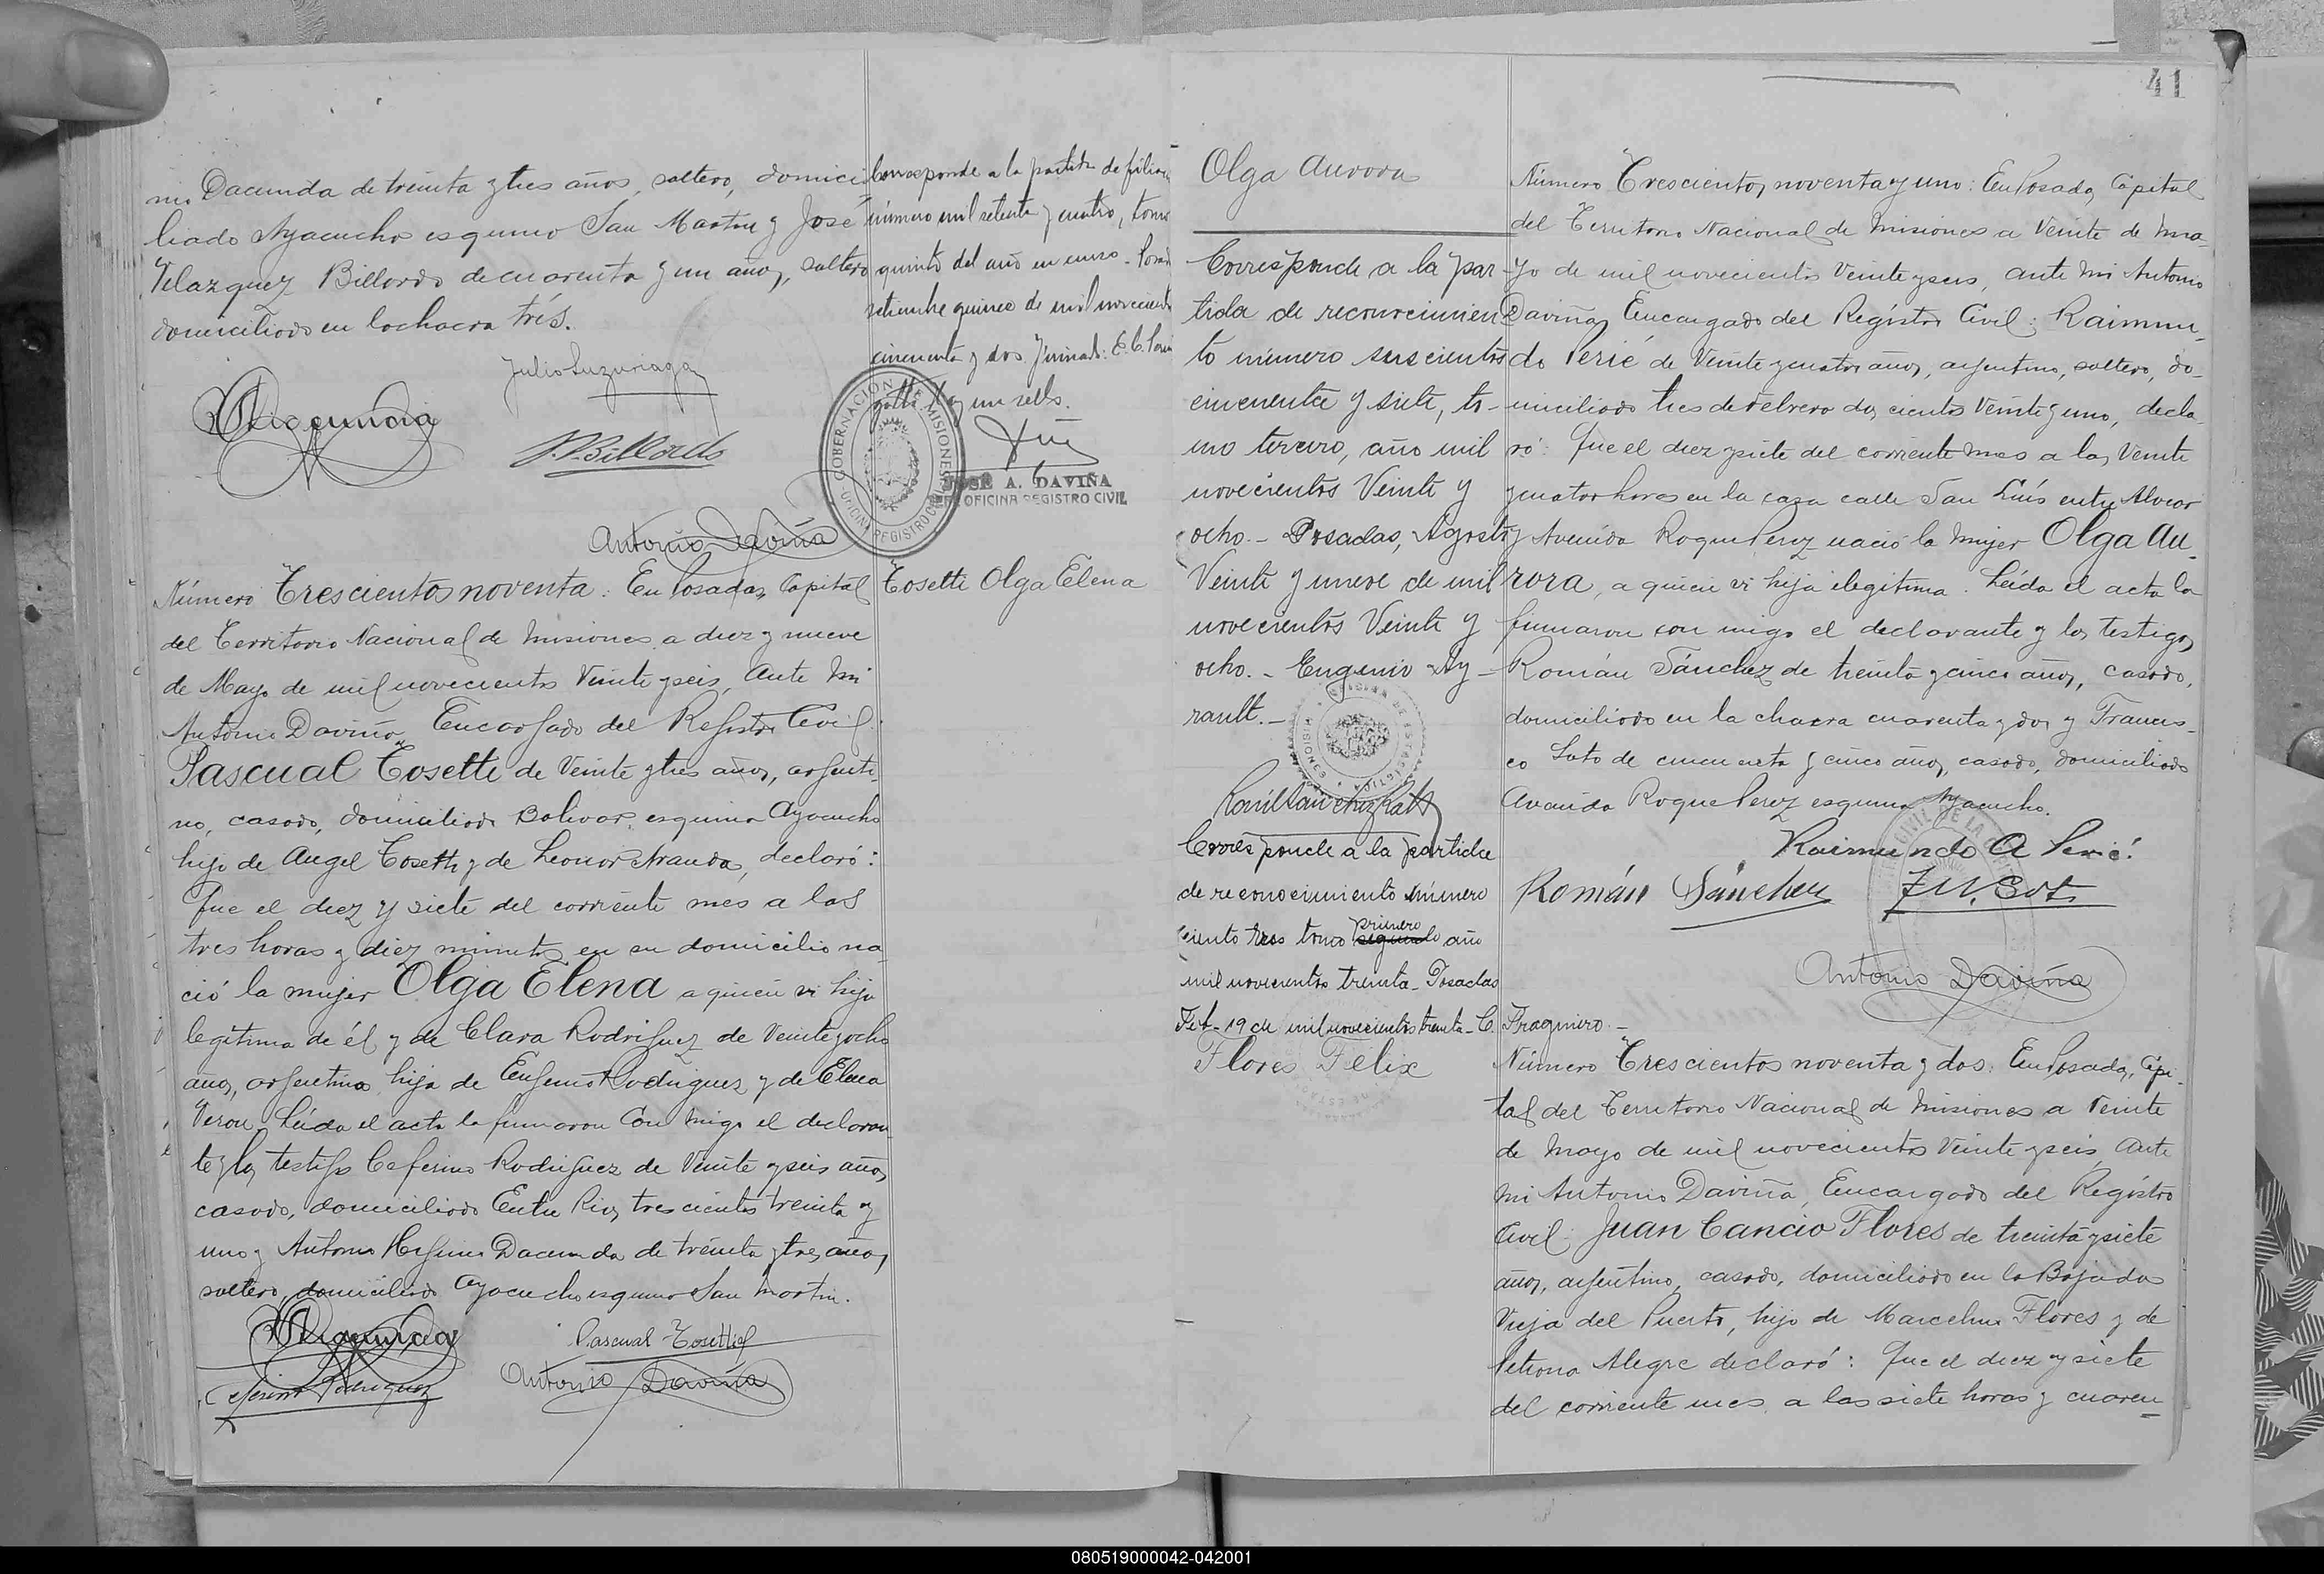 ni Dacunda de treinta y tres años, soltero, domici
liado Ayacucho esquina San Martin y José
Velazquez Billordo de cuarenta y un años, soltero
domiciliado en la chacra trés.
Julio Luzuriaga
J. V. Billordo
Antonio Daviña
Corresponde a la partida de filiac
número mil setenta y cuatro, tomo
quinto del año en curso - Posad
setiembre quince de mil novecient
cincuenta y dos. Firmado: E. C.
y un sello.
GOBERNACION DE MISIONES
OFICINA REGISTRO CIVIL
JOSÉ A. DAVIÑA
OFICINA REGISTRO CIVIL
Número Trescientos noventa: En Posadas, Capital
del Territorio Nacional de Misiones a diez y nueve
de Mayo de mil novecientos Veinte y seis, Ante Mi
Antonio Daviña, Encargado del Registro Civil:
Pascual Tosetti de Veinte y tres años, argenti-
no, casado, domiciliado Bolivar esquina Ayacucho
hijo de Angel Tosetti y de Leonor Aranda, declaró:
Que el diez y siete del corriente mes a las
tres horas y diez minutos en su domicilio na
ció la mujer Olga Elena a quien vi hija
legítima de él y de Clara Rodriguez de Veinte y ocho
años, argentina hija de Eugenio Rodriguez y de Elena
Veron. Leída el acta la firmaron Con migo el declaran
te y los testigos Ceferino Rodriguez de Veinte y seis años,
casado, domiciliado Entre Rios trescientos treinta y
uno y Antonio Higinio Dacunda de treinta y tres años,
soltero, domiciliado Ayacucho esquina San Martin.
Pascual Tosetti
Ceferino Rodriguez
Antonio Daviña
Tosetti Olga Elena
41
Olga Aurora
Corresponde a la par-
tida de reconocimien
to número seiscientos
cincuenta y siete, to-
mo tercero, año mil
novecientos Veinte y
ocho. - Posadas, Agosto
Veinte y nueve de mil
novecientos Veinte y
ocho. - Eugenio Ay-
rault. -
Corresponde a la partida
de reconocimiento número
ciento tres tomo primero segundo año
mil novecientos treinta - Posadas
Feb - 19 de mil novecientos treinta - C. Fragueiro. -
Número Trescientos noventa y uno: En Posadas, Capital
del Territorio Nacional de Misiones a Veinte de Ma-
yo de mil novecientos Veinte y seis, ante Mi Antonio
Daviña, Encargado del Registro Civil: Raimun-
do Perié de Veinte y cuatro años, argentino, soltero, do-
miciliado tres de Febrero dos cientos Veinte y uno, decla-
ró: Que el diez y siete del corriente mes a las Veinte
y cuatro horas en la casa calle San Luís entre Alvear
y Avenida Roque Perez nació la mujer Olga Au-
rora, a quien vi hija ilegitima. Leída el acta la
firmaron con migo el declarante y los testigos
Román Sánchez de treinta y cinco años, casado,
domiciliado en la chacra cuarenta y dos y Francis-
co Soto de cincuenta y cinco años, casado, domiciliado
Avenida Roque Perez esquina Ayacucho.
Raimundo A Perié.
Román Sánchez
Antonio Daviña
Flores Felix
Número Trescientos noventa y dos: En Posadas, Capi-
tal del Territorio Nacional de Misiones a Veinte
de Mayo de mil novecientos Veinte y seis, Ante
Mi Antonio Daviña, Encargado del Registro
Civil: Juan Cancio Flores de treinta y siete
años, argentino, casado, domiciliado en la Bajada
Vieja del Puerto, hijo de Marcelino Flores y de
Petrona Alegre declaró: Que el diez y siete
del corriente mes, a las siete horas y cuaren
080519000042-042001